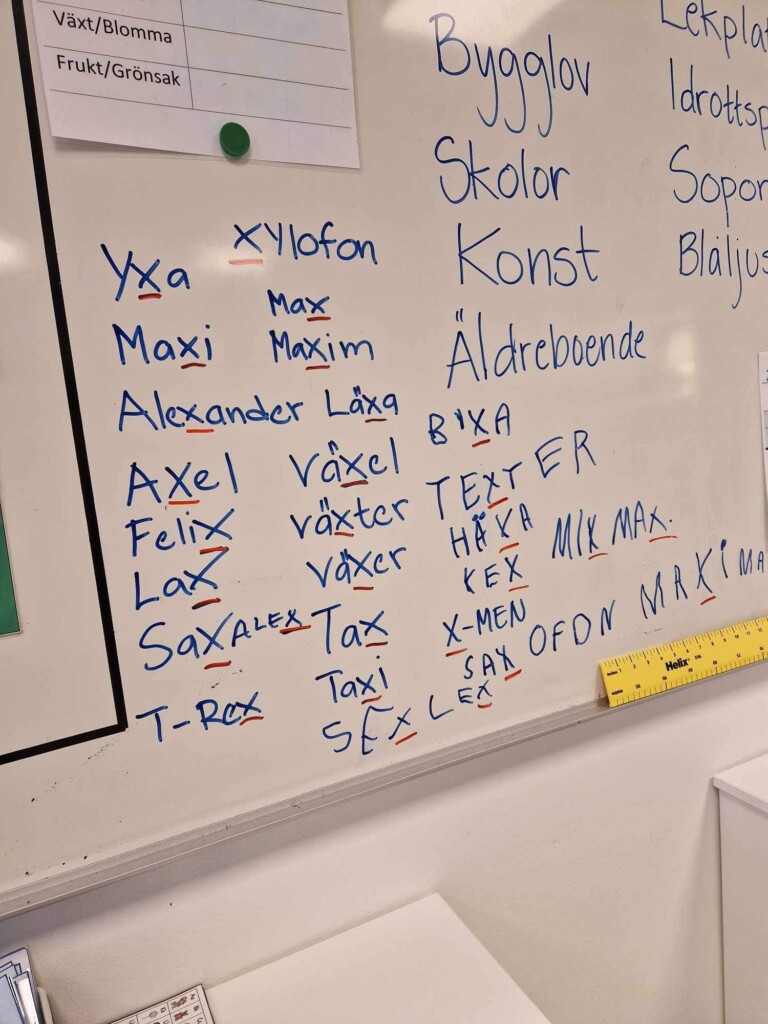 Växt/Blomma
Frukt/Grönsak
Bygglov
Skolor
Konst
Äldreboende
Idrottsp
Sopor
Blåljus
Lekplat
Yxa
Xylofon
Max
Maxi
Maxim
Alexander
Läxa
Axel
växel
Felix
växter
Lax
växer
Sax
ALEX
Tax
Taxi
T-Rex
SEX
LEX
BIXA
TEXTER
HÄXA
MIXMAX.
KEX
X-MEN
SAXOFON
MAXIMA
Helix